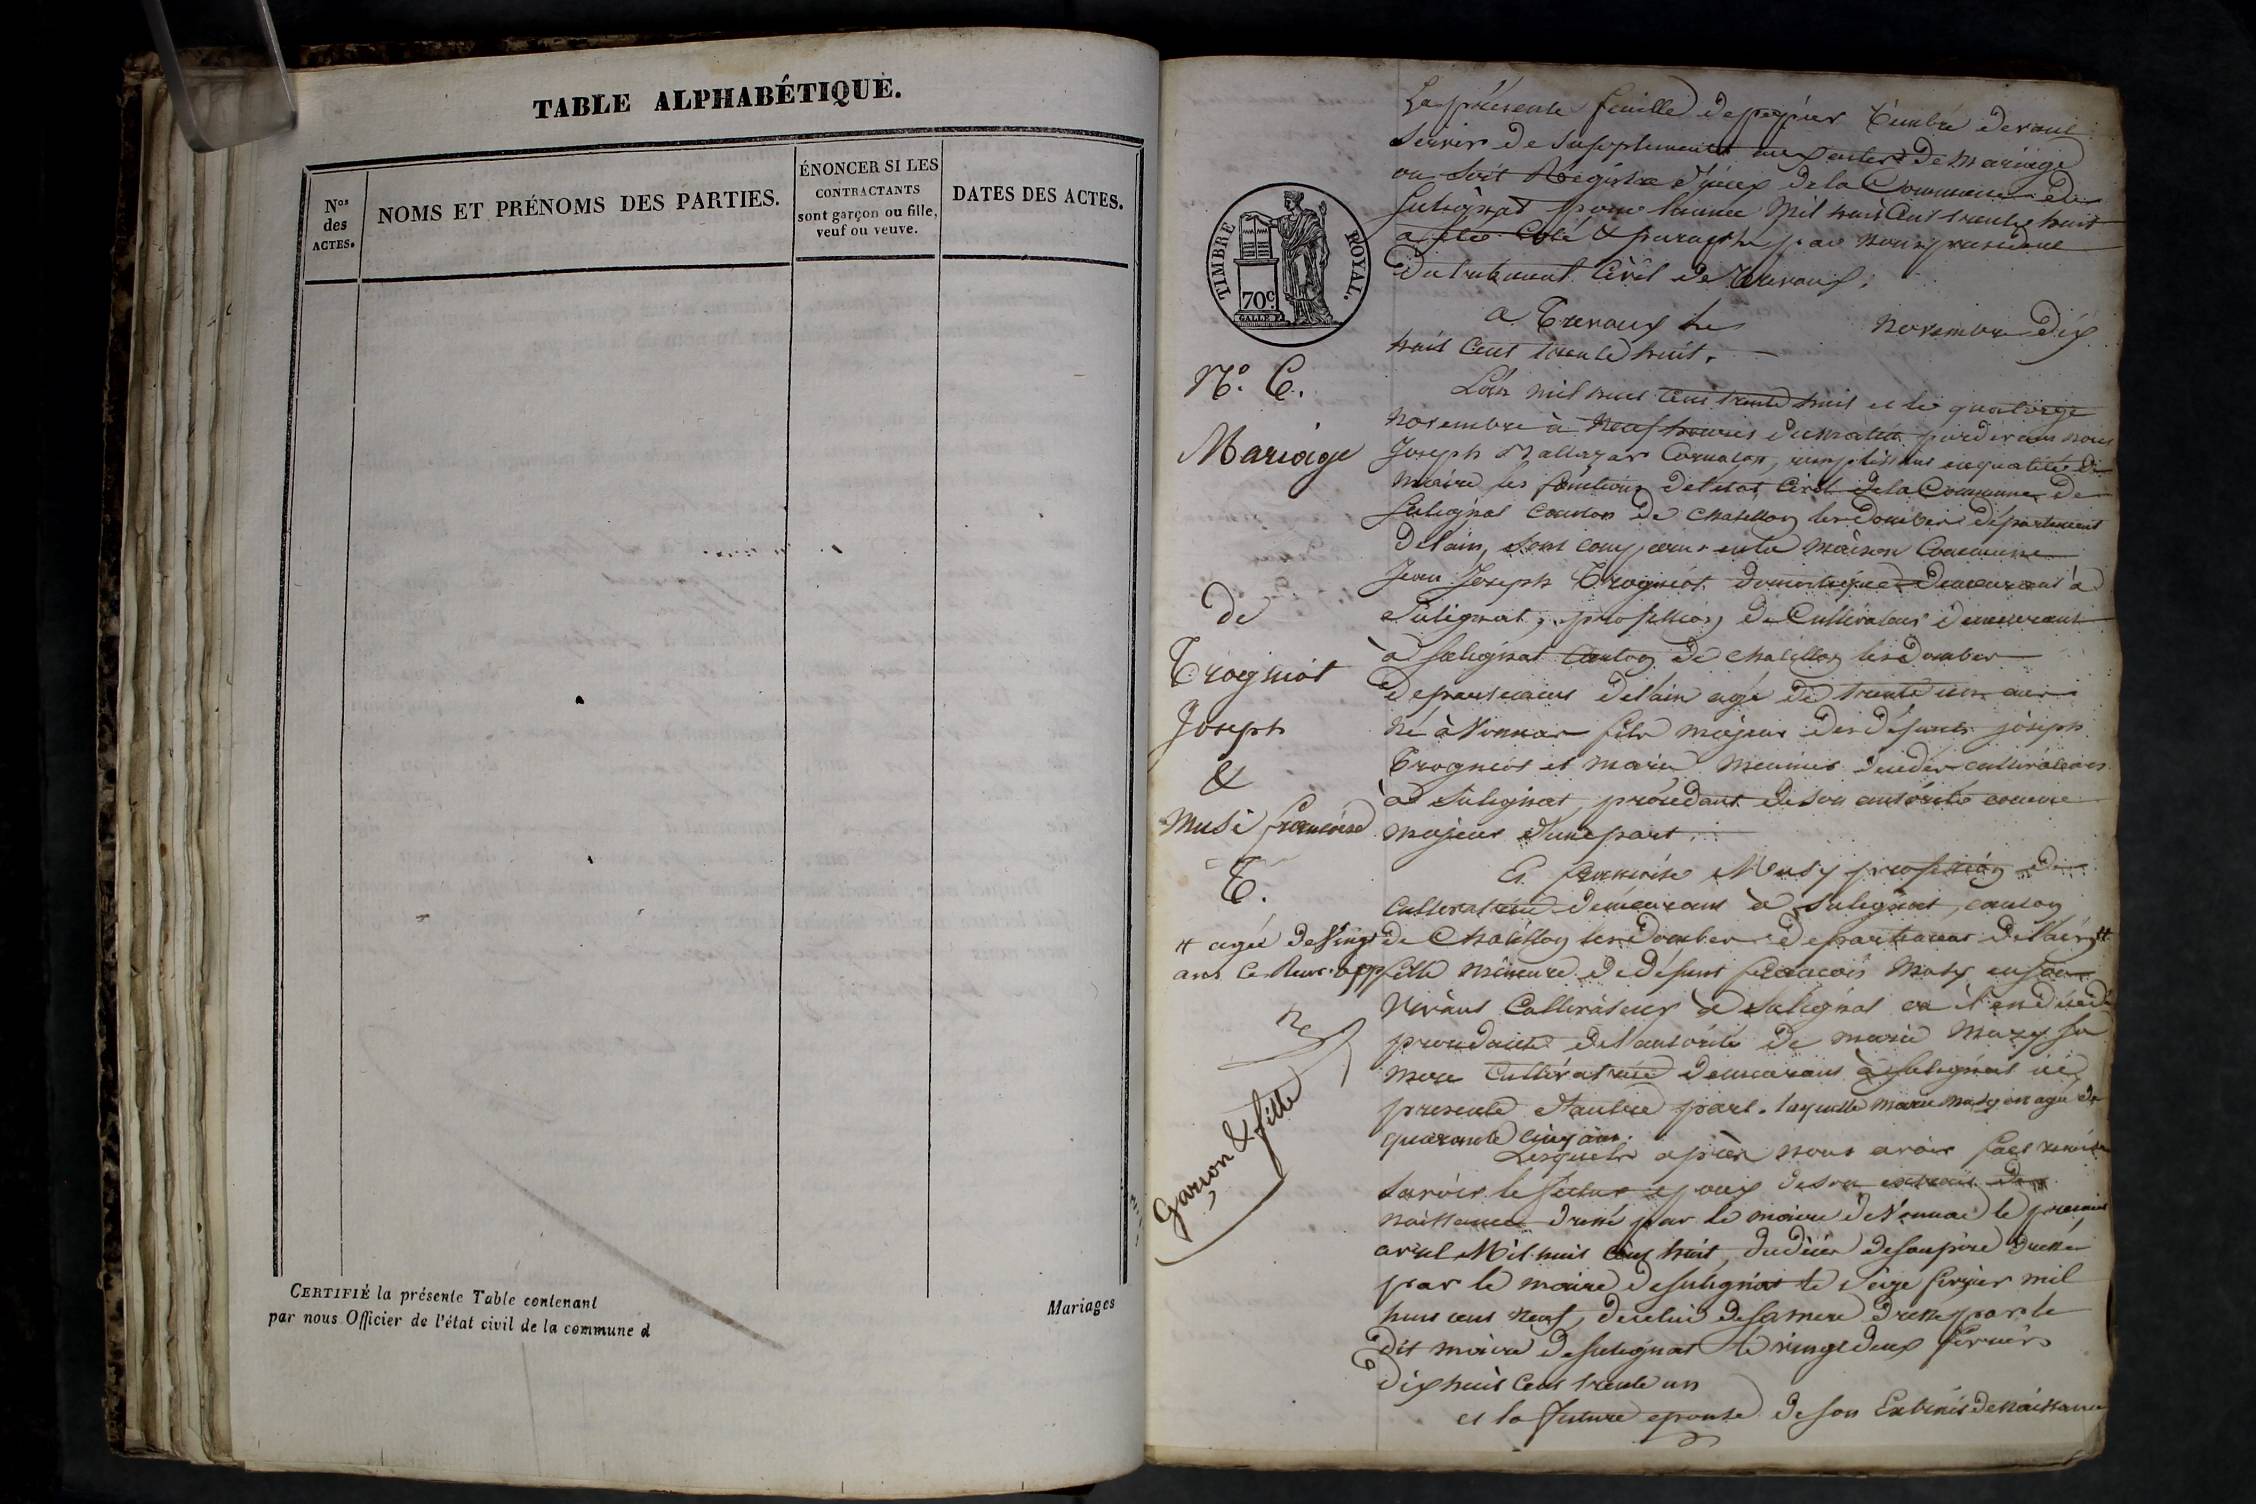 TABLE ALPHABÉTIQUE.
Nos
des
ACTES.
NOMS ET PRÉNOMS DES PARTIES.
ÉNONCER SI LES
CONTRACTANTS
sont garçon ou fille,
veuf ou veuve.
DATES DES ACTES.
CERTIFIÉ la présente Table contenant
par nous Officier de l'état civil de la commune d
Mariages
TIMBRE ROYAL.
70c.
La présente feuille de papier timbré devant
Servir de Supplement aux actes de Mariage
ou Soit Régistre d'iceux de la Commune de
Sulignat pour l'année Mil huit Cent trente huit
a été Coté & paraphé par nous président
Du tribunal Civil de Trevoux,
a Trevoux le novembre Dix
huit Cent trente huit.
No. 6.
Mariage
de
Trogniot
Joseph
&
Musi francoise
T.
+ agée de vingt
ans Ce Renv. app
Garcon & fille
L'an mil huit Cent trente huit et le quatorze
novembre à Neuf heures du matin pardevant nous
Joseph Cornaton, remplissant en qualité de
maire les fonctions de l'état Civil de la Commune de
Sulignat Canton de Chatillon les Dombes département
de l'ain, sont comparus en la maison Commune
Jean Joseph Trogniot domestique Demeurant à
Sulignat, profession de Cultivateur demeurant
à Sulignat Canton de Chatillon les dombes
departement de l'ain agé de trente un ans
né à Vonnas fils majeur des défunts joseph
Trogniot et marie Meunier décédés cultivateurs
à Sulignat, procédant de son autorité comme
majeur d'une part.
Et francoise Musy profession de
Cultivatrice demeurant à Sulignat, canton
de Chatillon les Dombes departement de l'ain +
fille mineure de défunt francois Musy en son
vivant Cultivateur à Sulignat où il en décédé
procedante de l'autorité de marie Mury sa
mere Cultivatrice demeurant à Sulignat ici
presente d'autre part. laquelle marie agée de
quarante cinq ans.
Lesquels après nous avoir fait remise
Savoir le futur epoux de son extrait de
naissance dressé par le maire de Vonnas le premier
avril Mil huit Cent huit, du décès de son père dressé
par le maire de Sulignat le seize février mil
huit cent neuf, de celui de sa mere dressé par le
dit maire de Sulignat le vingt deux février
Dix huit Cent trente un
et la future epouse de son Extrait de naissance